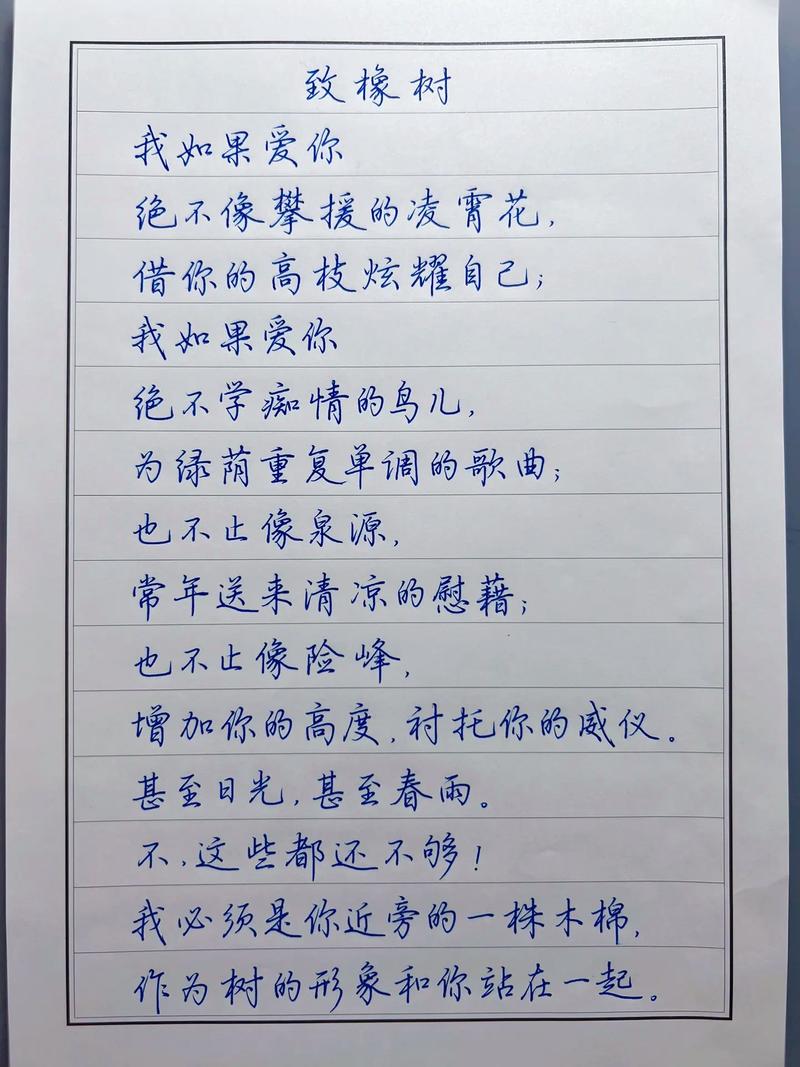 致橡树
我如果爱你
绝不像攀援的凌霄花，
借你的高枝炫耀自己；
我如果爱你
绝不学痴情的鸟儿，
为绿荫重复单调的歌曲；
也不止像泉源，
常年送来清凉的慰藉；
也不止像险峰，
增加你的高度，衬托你的威仪。
甚至日光，甚至春雨。
不，这些都还不够！
我必须是你近旁的一株木棉，
作为树的形象和你站在一起。